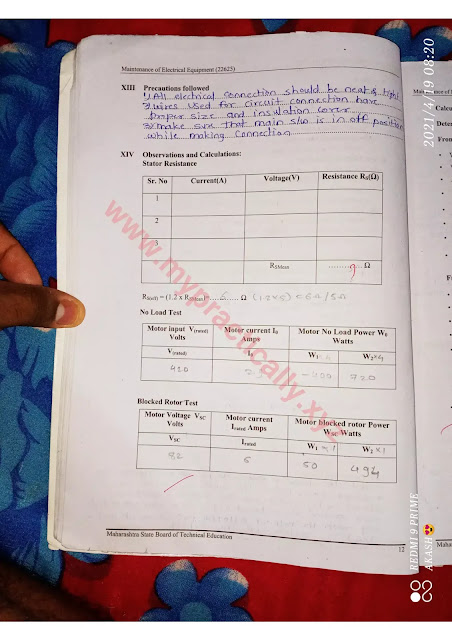 Maintenance of Electrical Equipment (22625)
XIII Precautions followed
1) All electrical connection should be neat & tight
2) wires used for circuit connection have
proper size and insulation cover
3) make sure that main s/w is in off position
while making connection
XIV Observations and Calculations:
Stator Resistance
Sr. No Current(A) Voltage(V) Resistance RS(Ω)
1
2
3
RSMean ......... Ω
No Load Test
Motor input V(rated) Volts Motor current I0 Amps Motor No Load Power W0 Watts
V(rated) I0 W1 W2×4
420 720
Blocked Rotor Test
Motor Voltage VSC Volts Motor current Irated Amps Motor blocked rotor Power WSC Watts
VSC Irated W1 W2 ×1
92 6 50 494
Maharashtra State Board of Technical Education
12
www.mypractically.xyz
2021/4/19 08:20
REDMI 9 PRIME
AKASH😍